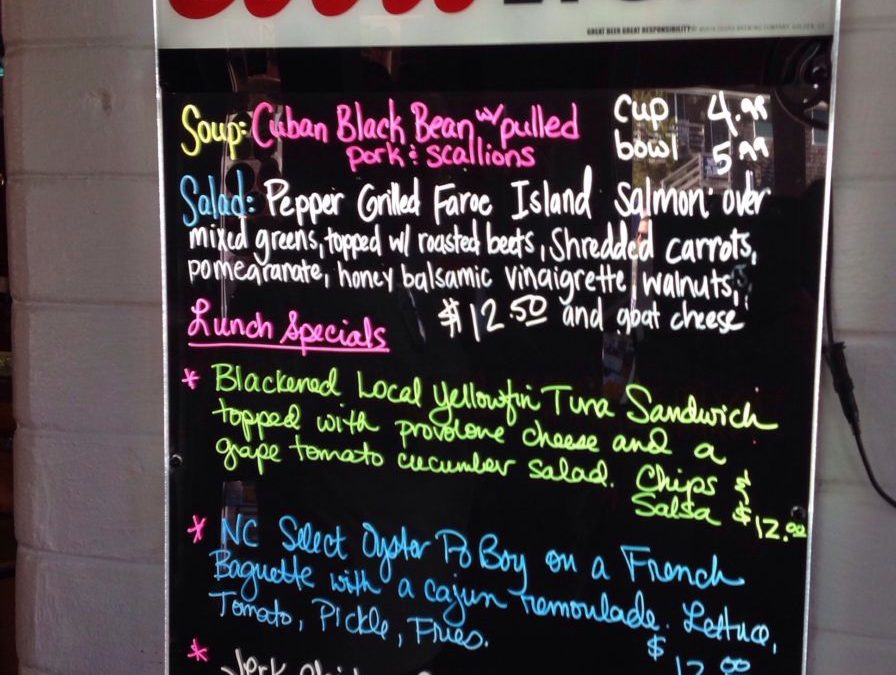 GREAT BEER GREAT RESPONSIBILITY
Soup: Cuban Black Bean w/ pulled cup 4.99
pork & scallions bowl 5.99
Salad: Pepper Grilled Faroe Island Salmon over
mixed greens, topped w/ roasted beets, Shredded carrots,
pomegranate, honey balsamic vinaigrette, walnuts,
$12.50 and goat cheese
Lunch Specials
* Blackened Local Yellowfin Tuna Sandwich
topped with provolone cheese and a
grape tomato cucumber salad. Chips &
Salsa $12.00
* NC Select Oyster Po Boy on a French
Baguette with a cajun remoulade. Lettuce,
Tomato, Pickle, Fries.
$12.00
* Jerk